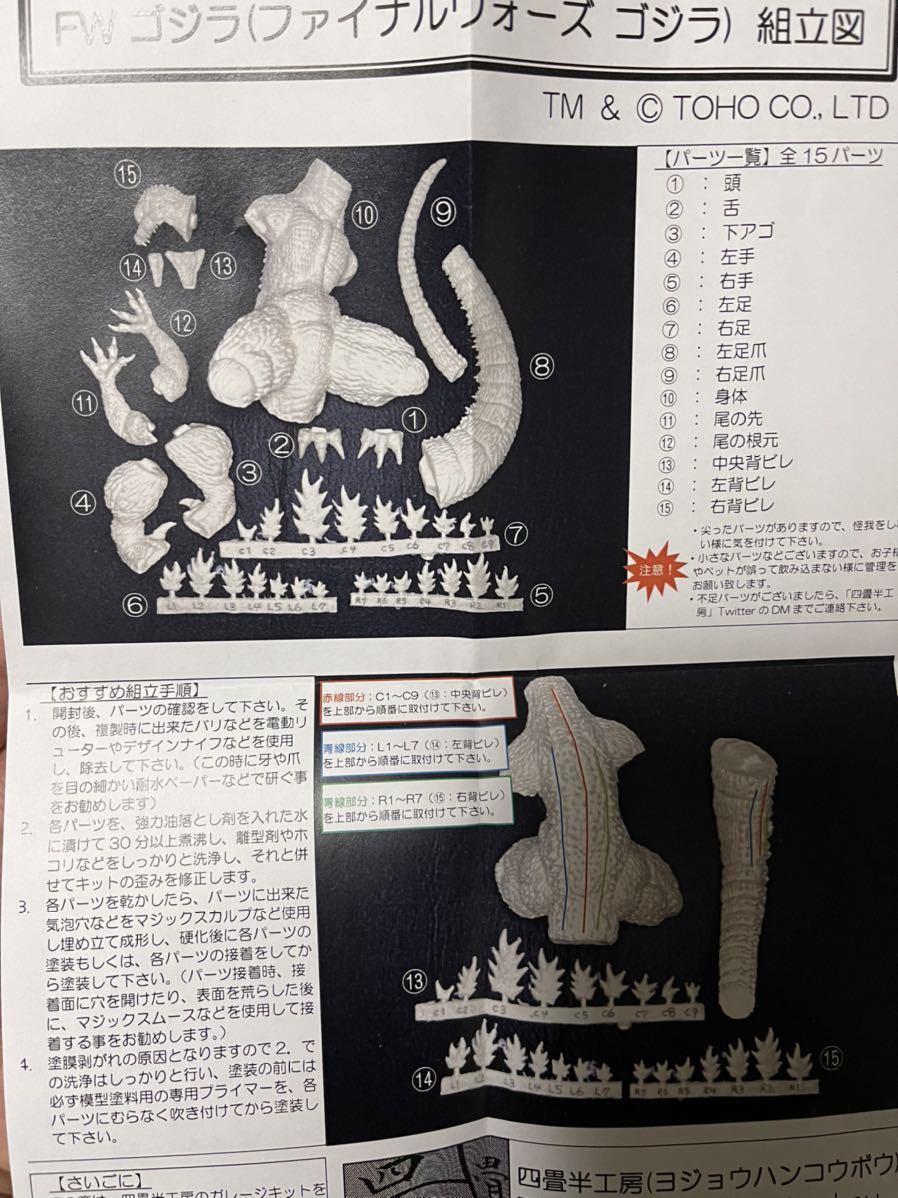 FW ゴジラ(ファイナルウォーズ ゴジラ) 組立図
TM & © TOHO CO., LTD
【パーツ一覧】全15パーツ
① : 頭
② : 舌
③ : 下アゴ
④ : 左手
⑤ : 右手
⑥ : 左足
⑦ : 右足
⑧ : 左足爪
⑨ : 右足爪
⑩ : 身体
⑪ : 尾の先
⑫ : 尾の根元
⑬ : 中央背ビレ
⑭ : 左背ビレ
⑮ : 右背ビレ
注意!
・尖ったパーツがありますので、怪我をし
い様に気を付けて下さい。
・小さなパーツなどございますので、お子様
やペットが誤って飲み込まない様に管理を
お願い致します。
・不足パーツがございましたら、「四畳半工
房」TwitterのDMまでご連絡下さい。
⑮
⑩
⑨
⑭
⑬
⑫
⑧
⑪
①
②
③
④
C1 C2 C3 C4 C5 C6 C7 C8 C9
⑦
⑥
L1 L2 L3 L4 L5 L6 L7
R7 R6 R5 R4 R3 R2 R1
⑤
【おすすめ組立手順】
1. 開封後、パーツの確認をして下さい。そ
の後、複製時に出来たバリなどを電動リ
ューターやデザインナイフなどを使用
し、除去して下さい。(この時に牙や爪
を目の細かい耐水ペーパーなどで研ぐ事
をお勧めします)
2. 各パーツを、強力油落とし剤を入れた水
に漬けて30分以上煮沸し、離型剤やホ
コリなどをしっかりと洗浄し、それと併
せてキットの歪みを修正します。
3. 各パーツを乾かしたら、パーツに出来た
気泡穴などをマジックスカルプなど使用
し埋め立て成形し、硬化後に各パーツの
塗装もしくは、各パーツの接着をしてか
ら塗装して下さい。(パーツ接着時、接
着面に穴を開けたり、表面を荒らした後
に、マジックスムースなどを使用して接
着する事をお勧めします。)
4. 塗膜剥がれの原因となりますので2.で
の洗浄はしっかりと行い、塗装の前には
必ず模型塗料用の専用プライマーを、各
パーツにむらなく吹き付けてから塗装し
て下さい。
赤線部分:C1~C9(⑬:中央背ビレ)
を上部から順番に取付けて下さい。
青線部分:L1~L7(⑭:左背ビレ)
を上部から順番に取付けて下さい。
青線部分:R1~R7(⑮:右背ビレ)
を上部から順番に取付けて下さい。
⑬
C1 C2 C3 C4 C5 C6 C7 C8 C9
⑭
L1 L2 L3 L4 L5 L6 L7
R7 R6 R5 R4 R3 R2 R1
⑮
【さいごに】
四畳半工房のガレージキットを
四畳半工房(ヨジョウハンコウボウ)